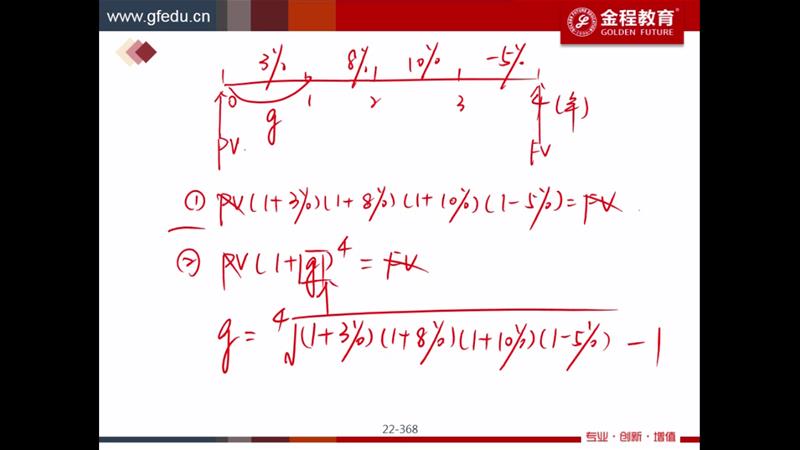 www.gfedu.cn
金程教育
GOLDEN FUTURE
3% 8% 10% -5%
0 1 2 3 4 (年)
g
PV FV
① PV(1+3%)(1+8%)(1+10%)(1-5%)=FV
② PV(1+g)^4=FV
g = ⁴√(1+3%)(1+8%)(1+10%)(1-5%) - 1
22-368
专业·创新·增值